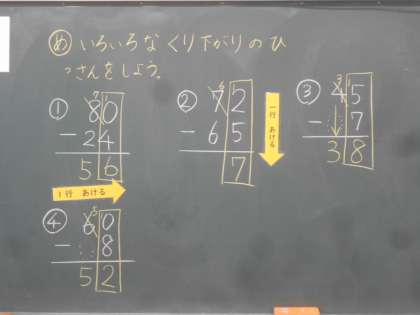 め いろいろな くり下がりの ひ
っさんをしよう。
① 7
80
-24
56
② 6
72
-65
7
一行 あける
③ 3
45
-7
38
1行 あける
④ 5
60
-8
52